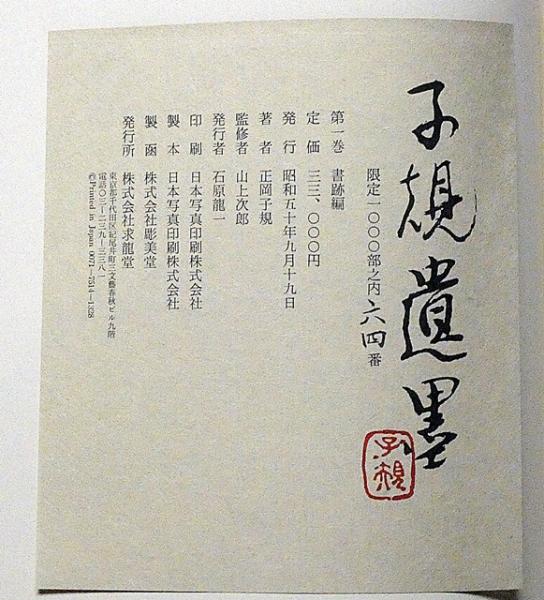 子規遺墨
子規
限定一〇〇〇部之内六四番
第一巻 書跡編
定価 三三、〇〇〇円
発行 昭和五十年九月十九日
著者 正岡子規
監修者 山上次郎
発行者 石原龍一
印刷 日本写真印刷株式会社
製本 日本写真印刷株式会社
製函 株式会社彫美堂
発行所 株式会社求龍堂
東京都千代田区紀尾井町三文藝春秋ビル九階
電話〇三―二三九―三三八一
©Printed in Japan 0071―7514―1328